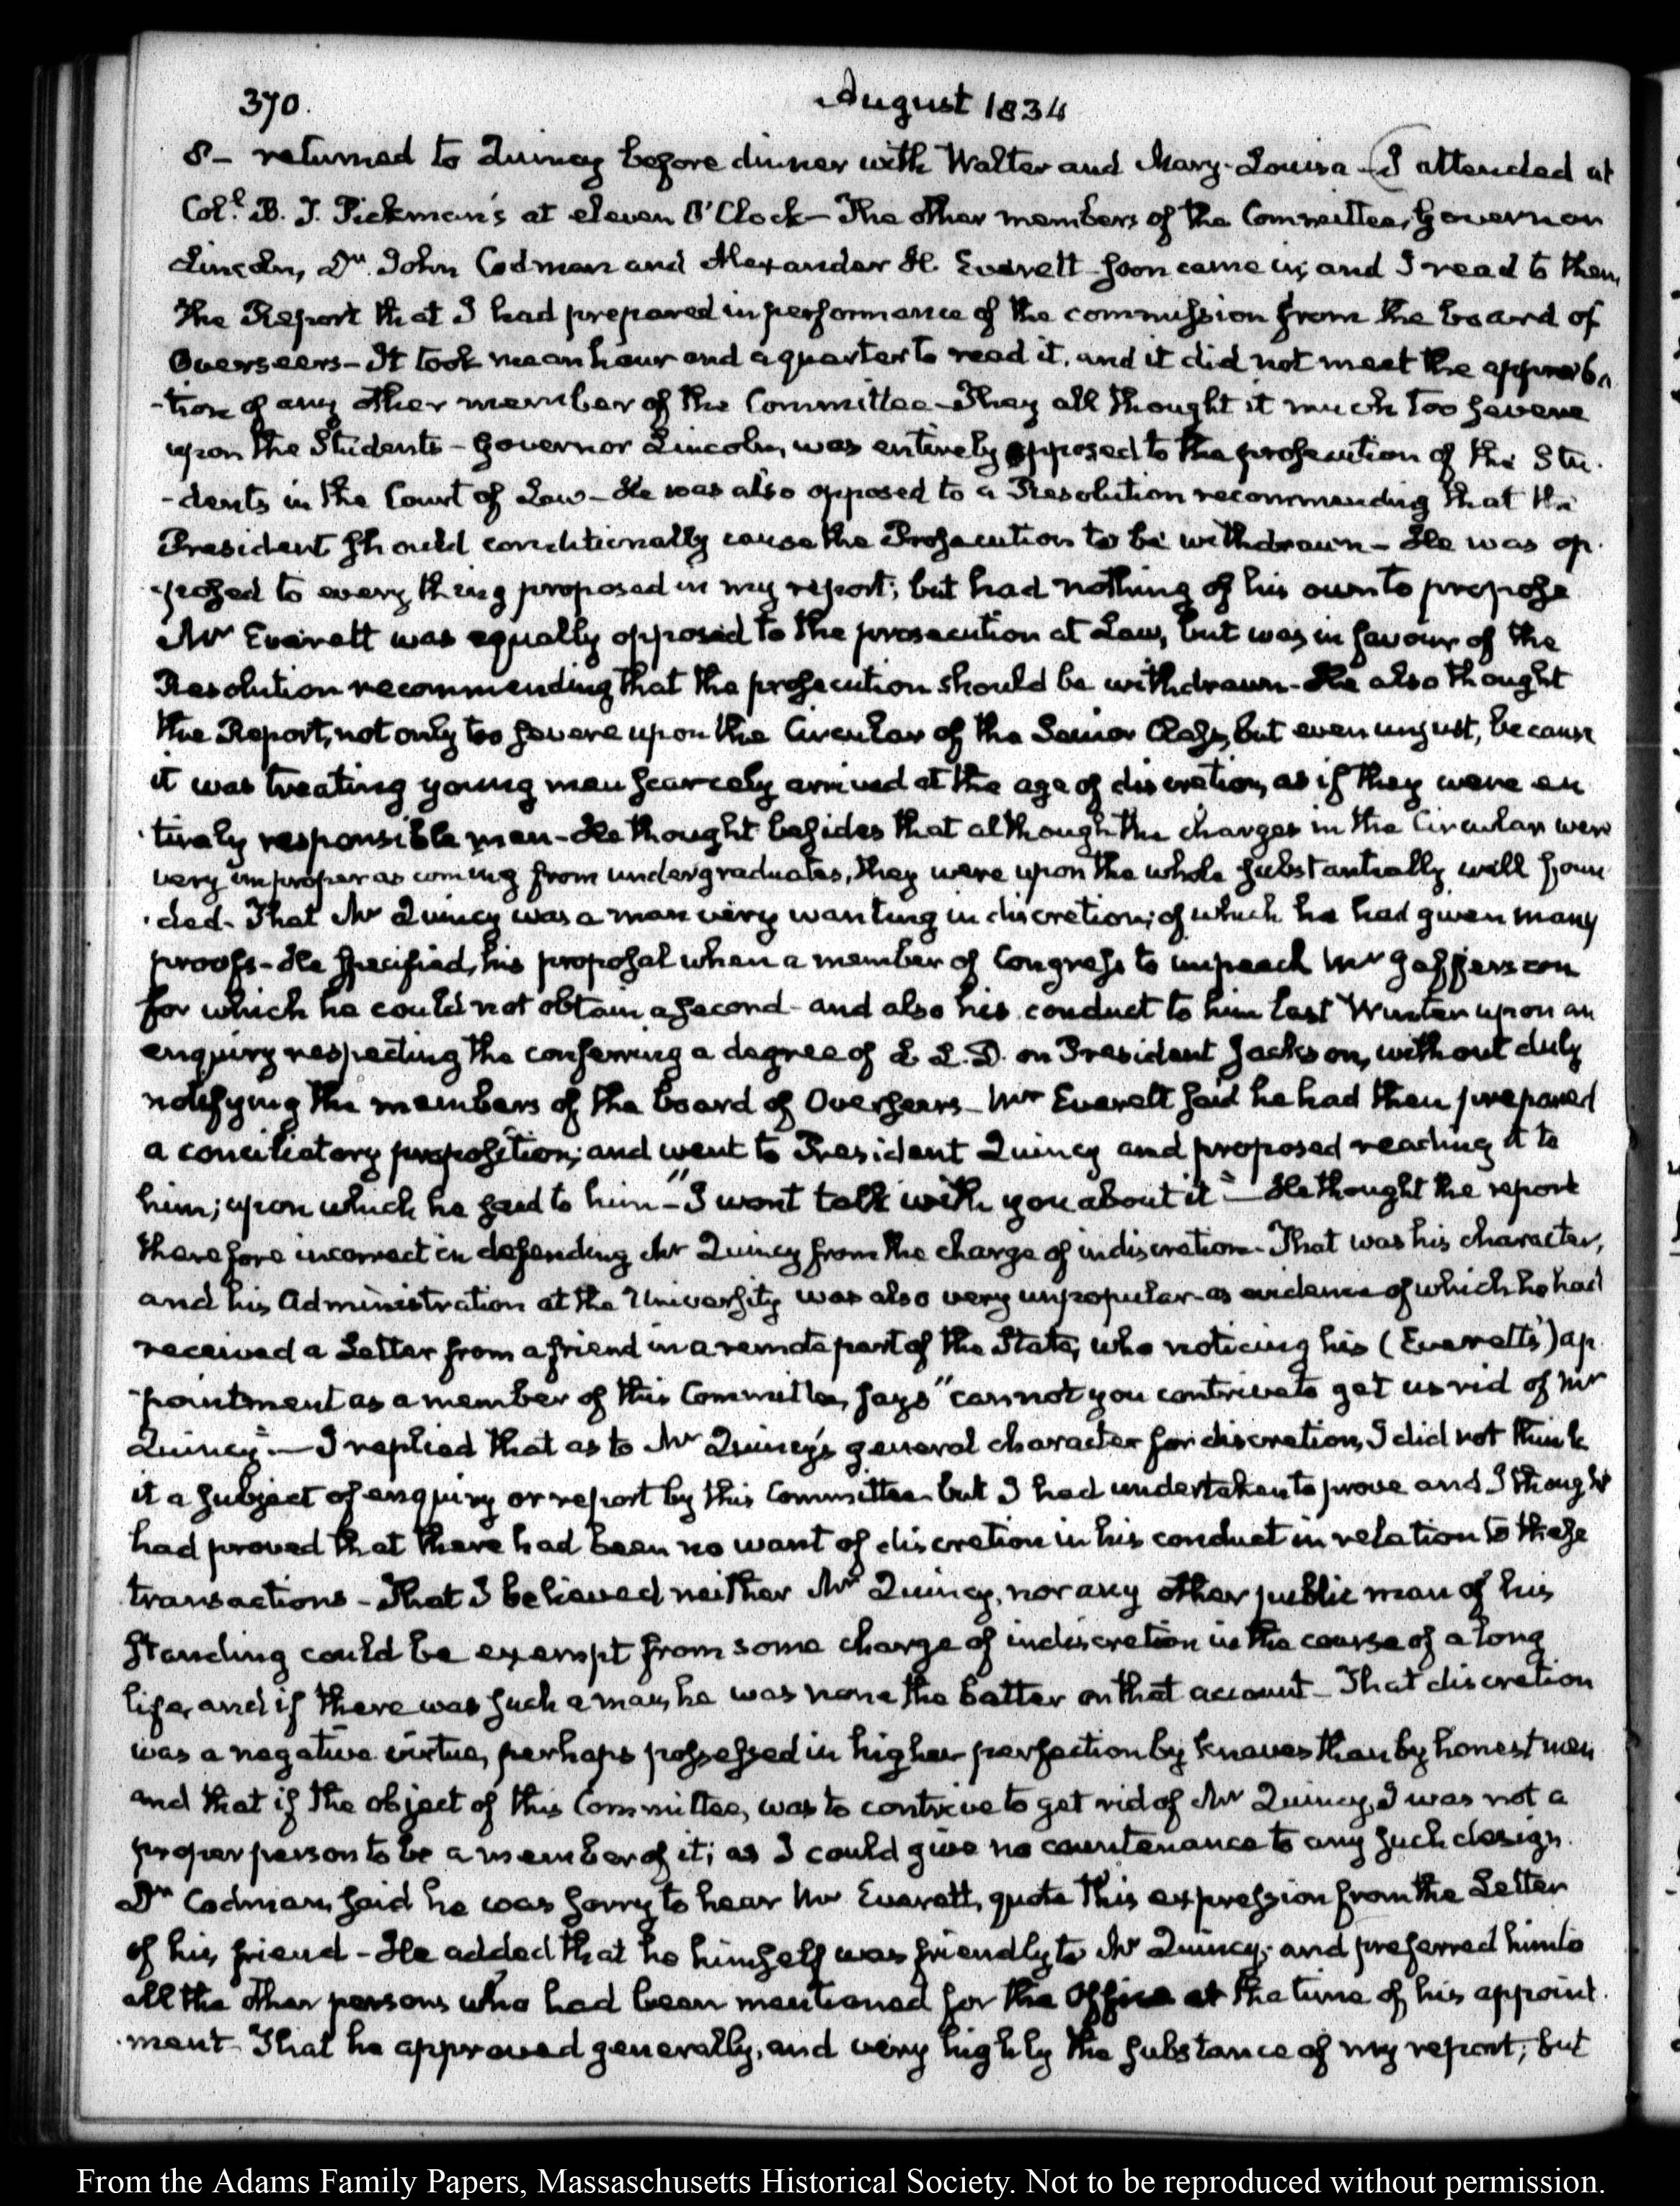 370.
August 1834
8 - returned to Quincy before dinner with Walter and Mary-Louisa - (I attended at
Col.l B. T. Pickman's at eleven O'Clock - The other members of the Committee, Governor
Lincoln, Dr. John Codman and Alexander H. Everett soon came in, and I read to them
the Report that I had prepared in performance of the commission from the board of
Overseers - It took me an hour and a quarter to read it, and it did not meet the approba
-tion of any other member of the Committee - They all thought it much too severe
upon the Students - Governor Lincoln, was entirely opposed to the prosecution of the Stu-
-dents in the Court of Law - He was also opposed to a Resolution recommending that the
President should conditionally cause the Prosecution to be withdrawn - He was op-
-posed to every thing proposed in my report; but had nothing of his own to propose
Mr Everett was equally opposed to the prosecution at Law, but was in favour of the
Resolution recommending that the prosecution should be withdrawn - He also thought
the Report, not only too severe upon the Circular of the Senior Class, but even unjust, because
it was treating young men scarcely arrived at the age of discretion, as if they were en
-tirely responsible men - He thought besides that although the charges in the Circular were
very improper as coming from undergraduates, they were upon the whole substantially well foun
-ded - That Mr Quincy was a man very wanting in discretion; of which he had given many
proofs - He specified, his proposal when a member of Congress to impeach Mr Jefferson
for which he could not obtain a second - and also his conduct to him last Winter upon an
enquiry respecting the conferring a degree of L. L. D. on President Jackson, without duly
notifying the members of the board of Overseers - Mr Everett said he had then prepared
a conciliatory proposition; and went to President Quincy and proposed reading it to
him; upon which he said to him - "I wont talk with you about it" - He thought the report
therefore incorrect in defending Mr Quincy from the charge of indiscretion - That was his character,
and his Administration at the University was also very unpopular - as evidence of which he had
received a Letter from a friend in a remote part of the State, who noticing his (Everett's) ap-
-pointment as a member of this Committee, says "cannot you contrive to get us rid of Mr
Quincy" - I replied that as to Mr Quincy's general character for discretion, I did not think
it a subject of enquiry or report by this Committee - but I had undertaken to prove and I thought
had proved that there had been no want of discretion in his conduct in relation to these
transactions - That I believed neither Mr Quincy, nor any other public man of his
standing could be exempt from some charge of indiscretion in the course of a long
life, and if there was such a man, he was none the better on that account - That discretion
was a negative virtue, perhaps possessed in higher perfection by knaves than by honest men
and that if the object of this Committee, was to contrive to get rid of Mr Quincy, I was not a
proper person to be a member of it; as I could give no countenance to any such design.
Dr Codman, said he was sorry to hear Mr Everett, quote this expression from the Letter
of his friend - He added that he himself was friendly to Mr Quincy; and preferred him to
all the other persons who had been mentioned for the Office at the time of his appoint-
-ment - That he approved generally, and very highly the substance of my report; but
From the Adams Family Papers, Massachusetts Historical Society. Not to be reproduced without permission.